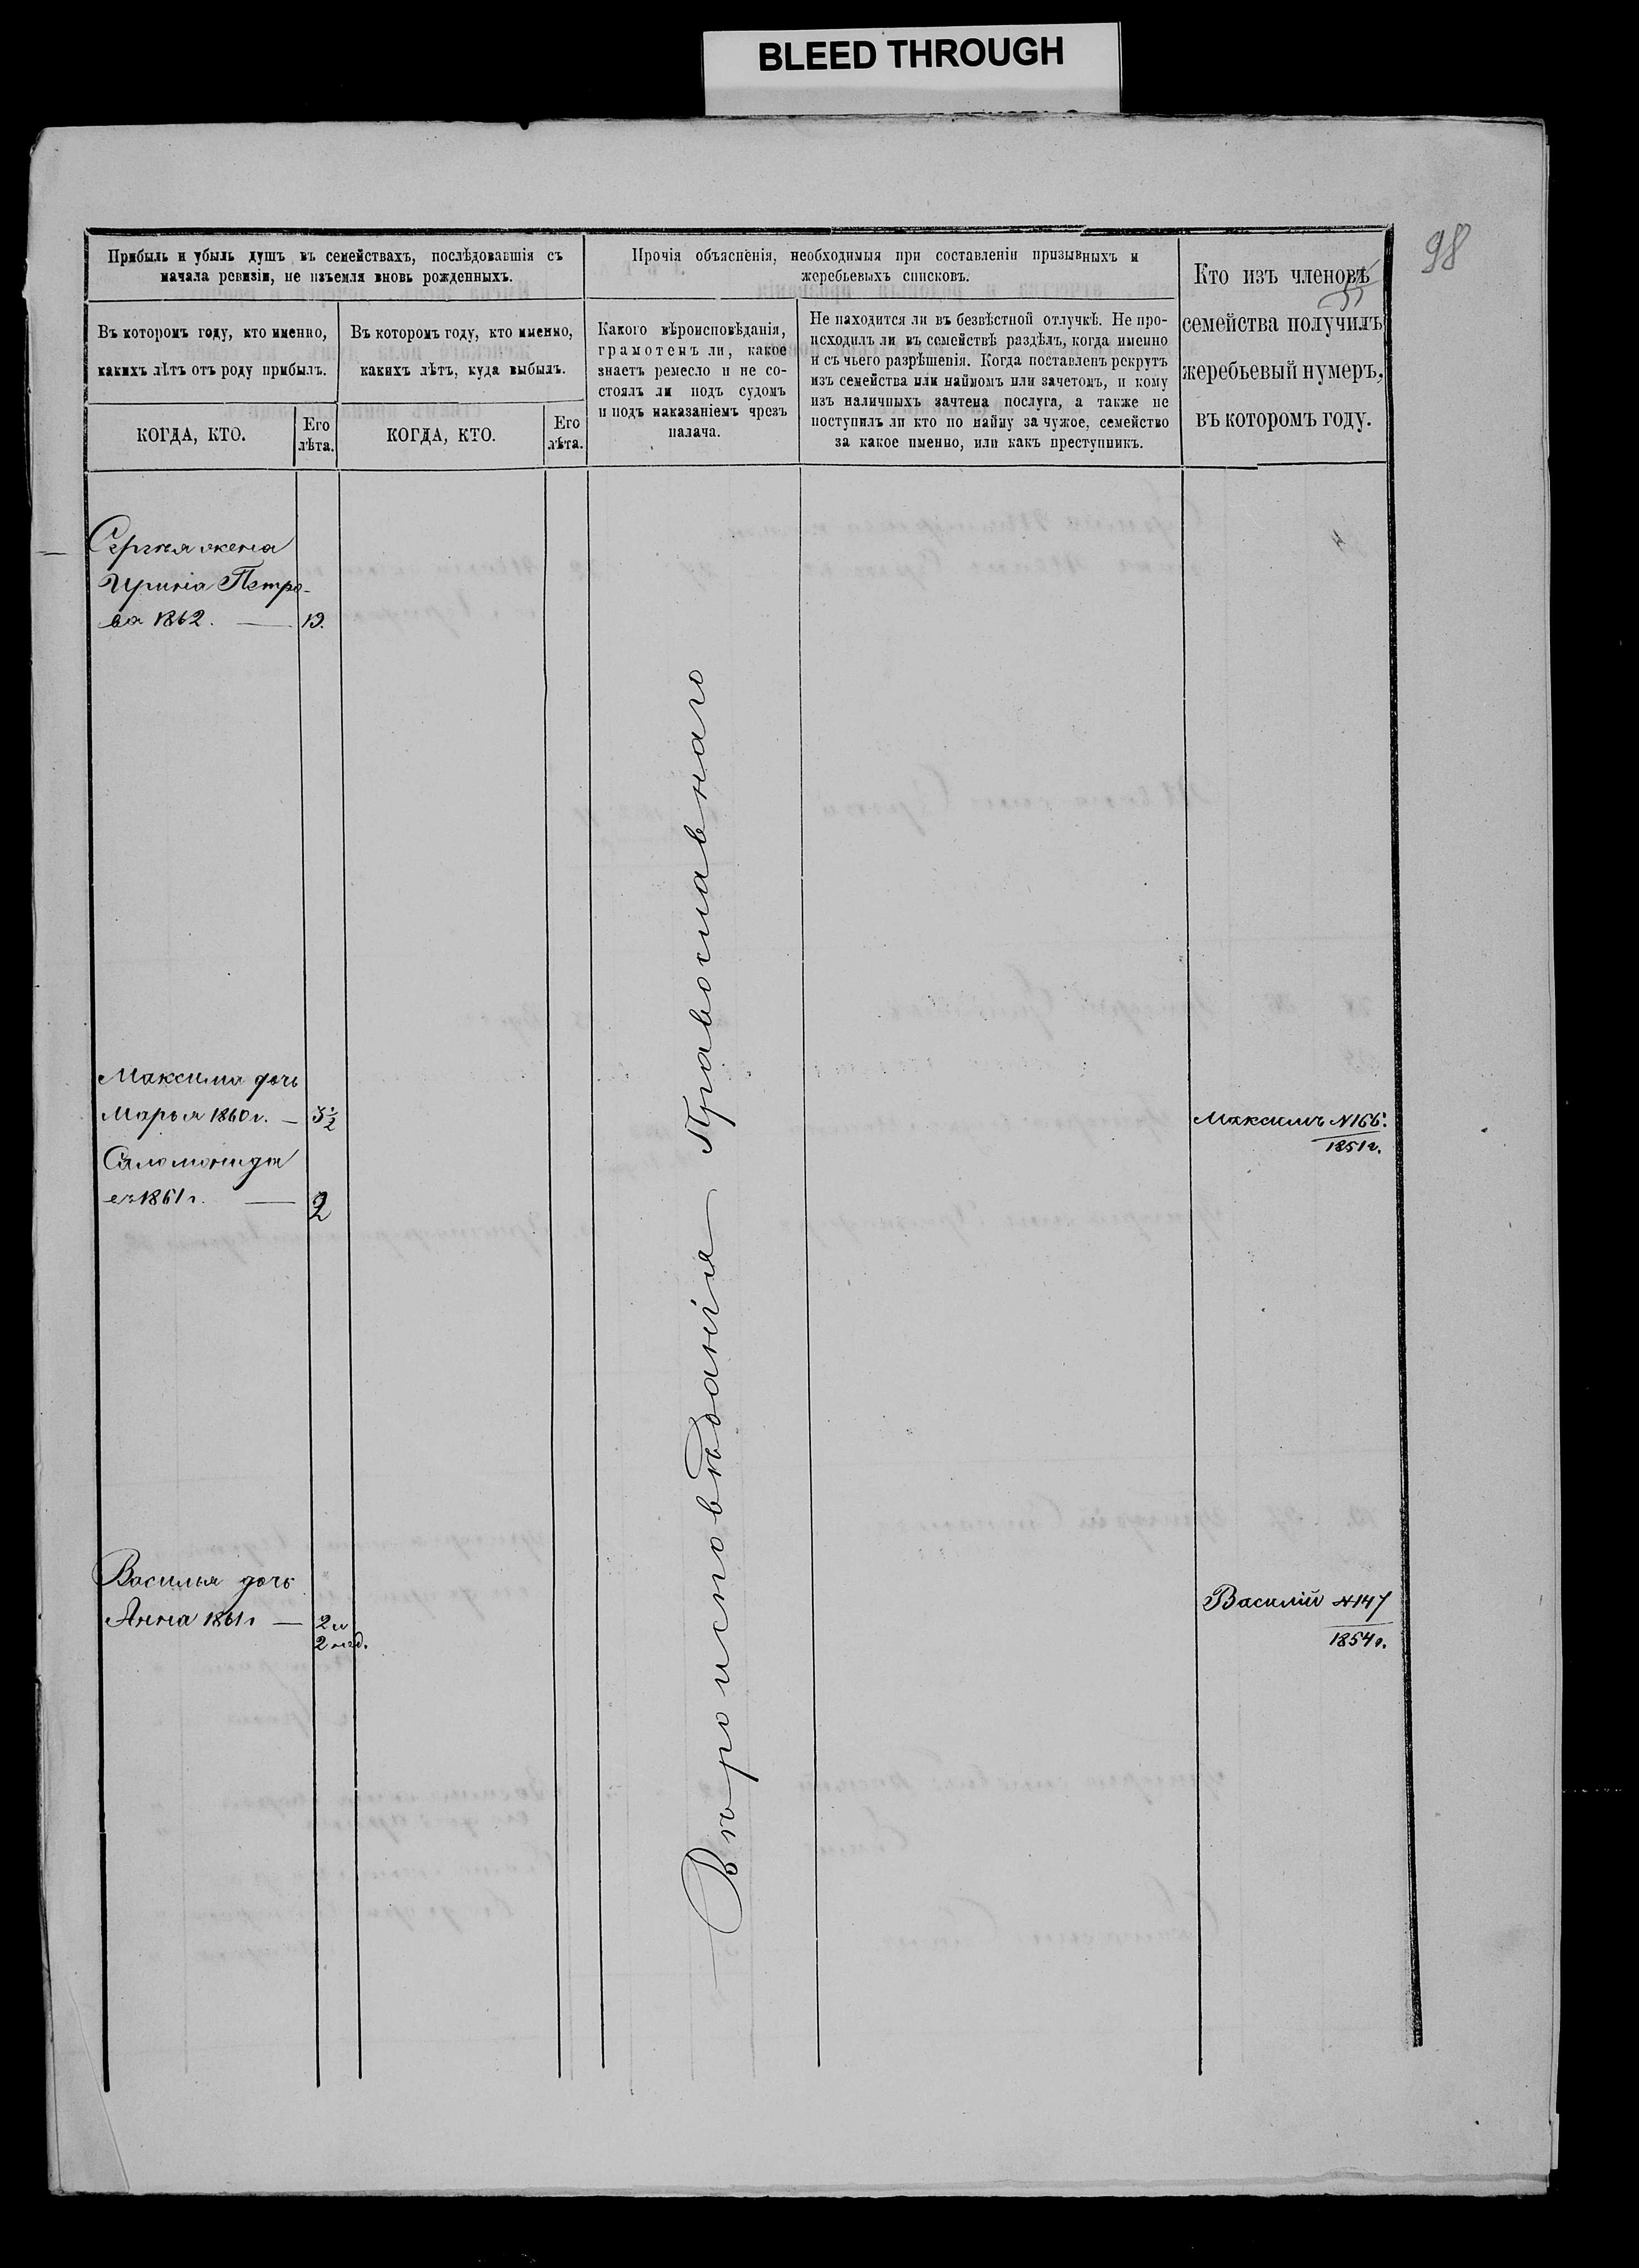 BLEED THROUGH
98
Прибыль и убыль душъ въ семействахъ, послѣдовавшія съ
начала ревизіи, не изъемля вновь рожденныхъ.
Прочія объясненія, необходимыя при составленіи призывныхъ и
жеребьевыхъ списковъ.
Кто изъ членовъ
семейства получилъ
жеребьевый нумеръ,
въ которомъ году.
Въ которомъ году, кто именно,
какихъ лѣтъ отъ роду прибылъ.
Въ которомъ году, кто именно,
какихъ лѣтъ, куда выбылъ.
Какого вѣроисповѣданія,
грамотенъ ли, какое
знаетъ ремесло и не со-
стоялъ ли подъ судомъ
и подъ наказаніемъ чрезъ
палача.
Не находится ли въ безвѣстной отлучкѣ. Не про-
исходилъ ли въ семействѣ раздѣлъ, когда именно
и съ чьего разрѣшенія. Когда поставленъ рекрутъ
изъ семейства или наймомъ или зачетомъ, и кому
изъ наличныхъ зачтена послуга, а также не
поступилъ ли кто по найму за чужое, семейство
за какое именно, или какъ преступникъ.
КОГДА, КТО.
Его
лѣта.
КОГДА, КТО.
Его
лѣта.
Сергѣя жена
Ирина Петро-
ва 1862. — 19.
Вѣроисповѣданія Православнаго
Максима дочь
Марья 1860 г. — 3½
Саломонида
1861 г. — 2
Максимъ №166.
1851 г.
Василья дочь
Анна 1861 г — 2 и
2 нед.
Василій №147
1854 г.